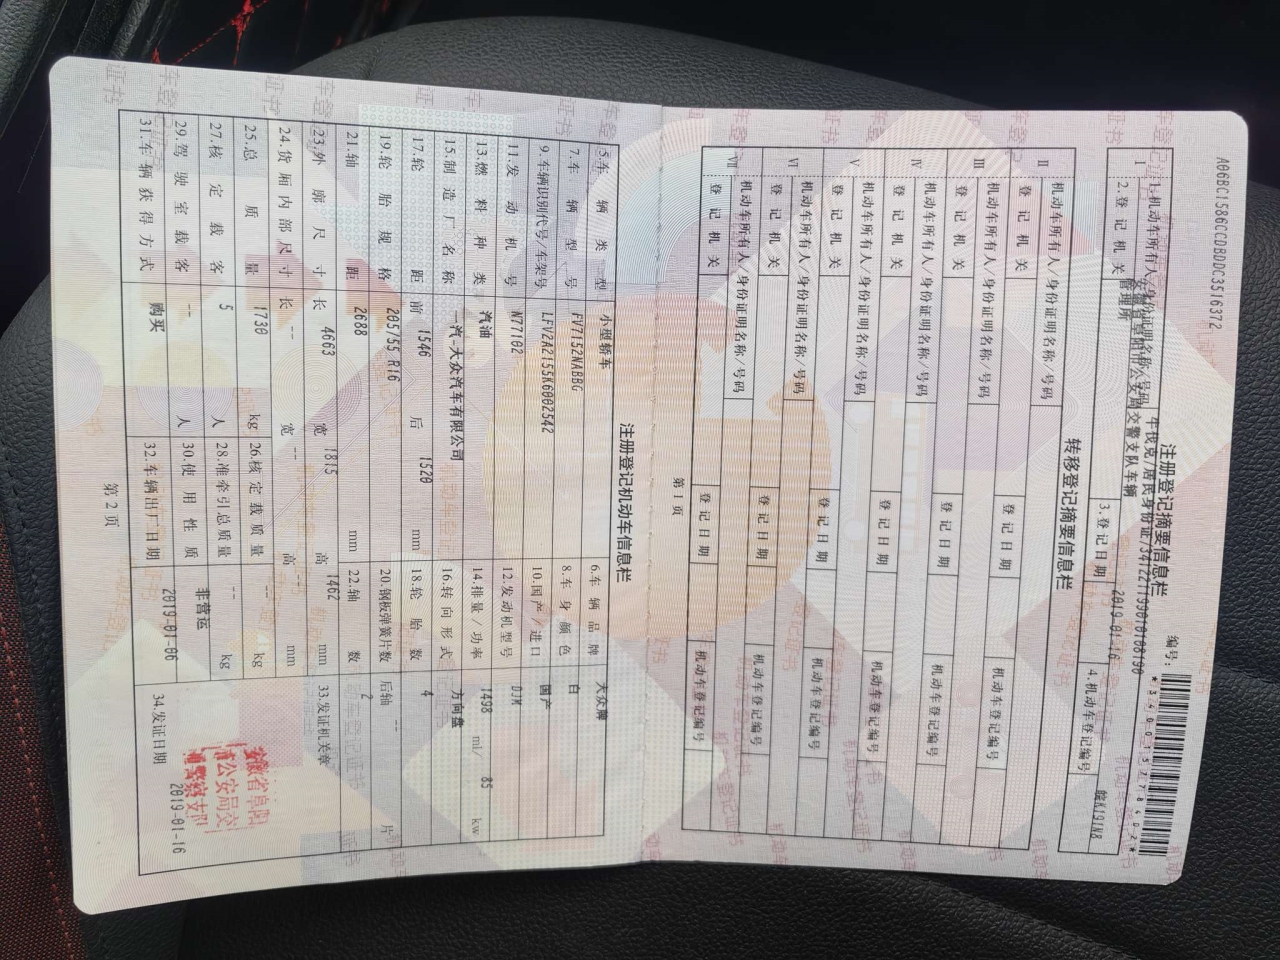 A06BC1586CCDBDDC3516372
编号:
*340015278402*
注册登记摘要信息栏
I
1.机动车所有人/身份证明名称/号码
牛现克/居民身份证/341221199010108190
2.登记机关
安徽省阜阳市公安局交警支队车辆管理所
3.登记日期
2019-01-16
4.机动车登记编号
皖K191N8
转移登记摘要信息栏
II
机动车所有人/身份证明名称/号码
登记机关
登记日期
机动车登记编号
III
机动车所有人/身份证明名称/号码
登记机关
登记日期
机动车登记编号
IV
机动车所有人/身份证明名称/号码
登记机关
登记日期
机动车登记编号
V
机动车所有人/身份证明名称/号码
登记机关
登记日期
机动车登记编号
VI
机动车所有人/身份证明名称/号码
登记机关
登记日期
机动车登记编号
VII
机动车所有人/身份证明名称/号码
登记机关
登记日期
机动车登记编号
第1页
注册登记机动车信息栏
5.车辆类型 小型轿车 6.车辆品牌 大众牌
7.车辆型号 FV7152NABBG 8.车身颜色 白
9.车辆识别代号/车架号 LFV2A2155K6002542 10.国产/进口 国产
11.发动机号 N77102 12.发动机型号 DJN
13.燃料种类 汽油 14.排量/功率 1498 ml/ 85 kw
15.制造厂名称 一汽-大众汽车有限公司 16.转向形式 方向盘
17.轮距 前 1546 后 1520 mm 18.轮胎数 4
19.轮胎规格 205/55 R16 20.钢板弹簧片数 后轴 -- 片
21.轴距 2688 mm 22.轴数 2
23.外廓尺寸 长 4663 宽 1815 高 1462 mm 33.发证机关章
24.货厢内部尺寸 长 -- 宽 -- 高 -- mm
25.总质量 1730 kg 26.核定载质量 -- kg
27.核定载客 5 人 28.准牵引总质量 -- kg
29.驾驶室载客 -- 人 30.使用性质 非营运
31.车辆获得方式 购买 32.车辆出厂日期 2019-01-06 34.发证日期 2019-01-16
安徽省阜阳
市公安局交
通警察支队
第2页